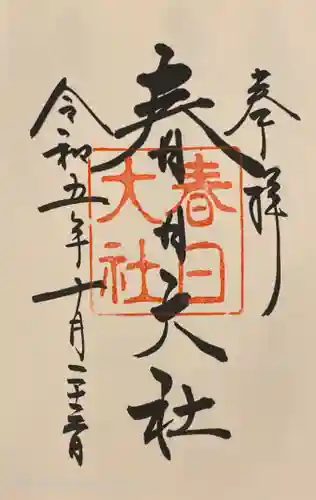 奉拝
春日大社
春日
大社
令和五年十月二十二日